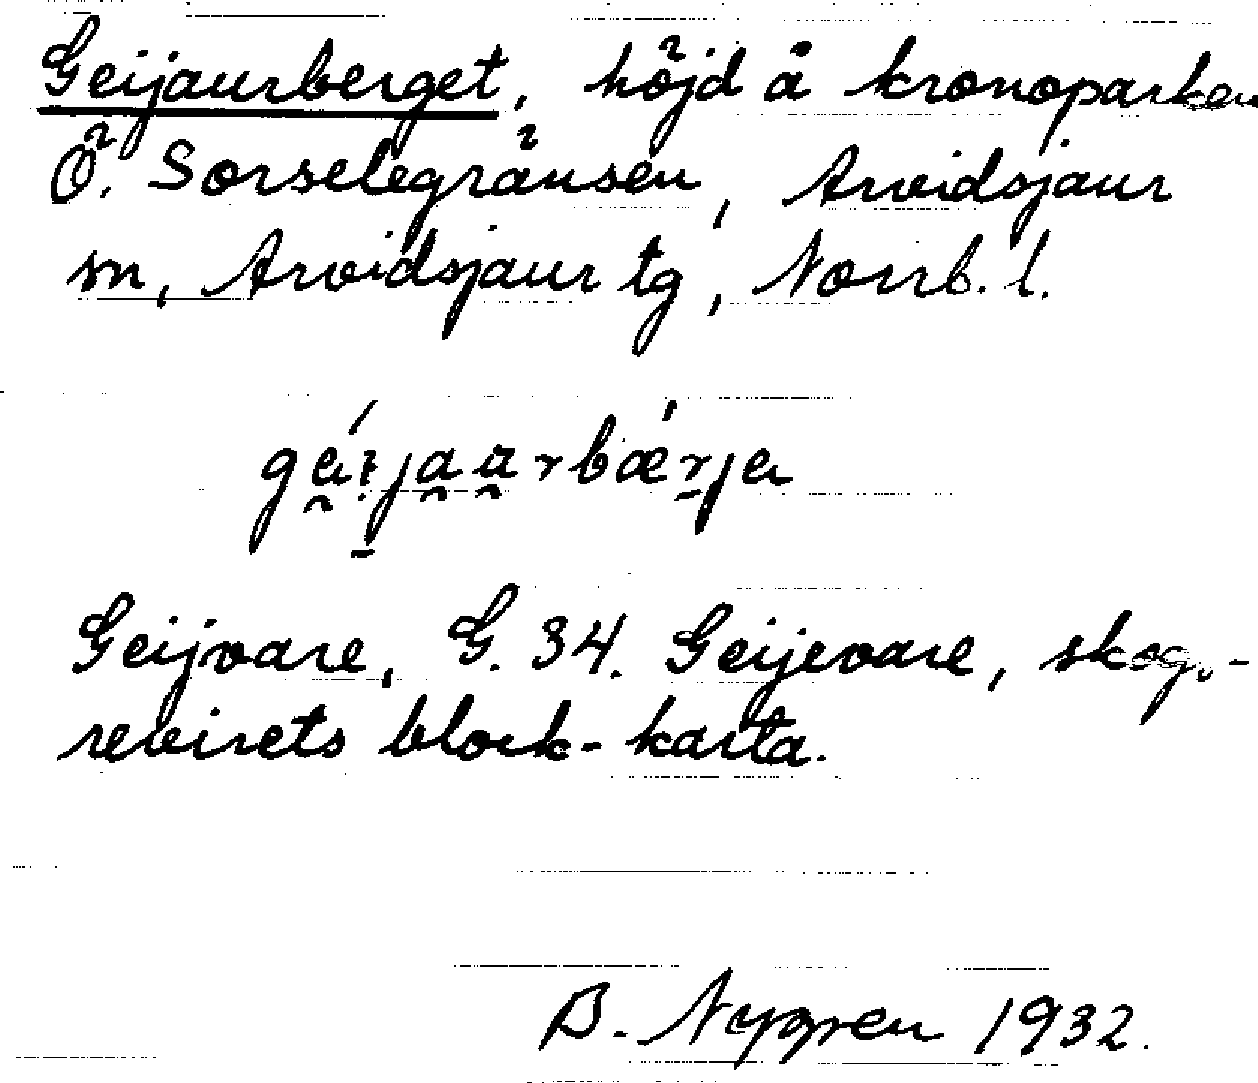 Geijaurberget, höjd å kronoparken
Ö. Sorselegränsen, Arvidsjaur
sn, Arvidsjaur tg, Norrb. l.
Geijvare, G. 34. Geijevare, skogs-
revirets block-karta.
B. Nygren 1932.